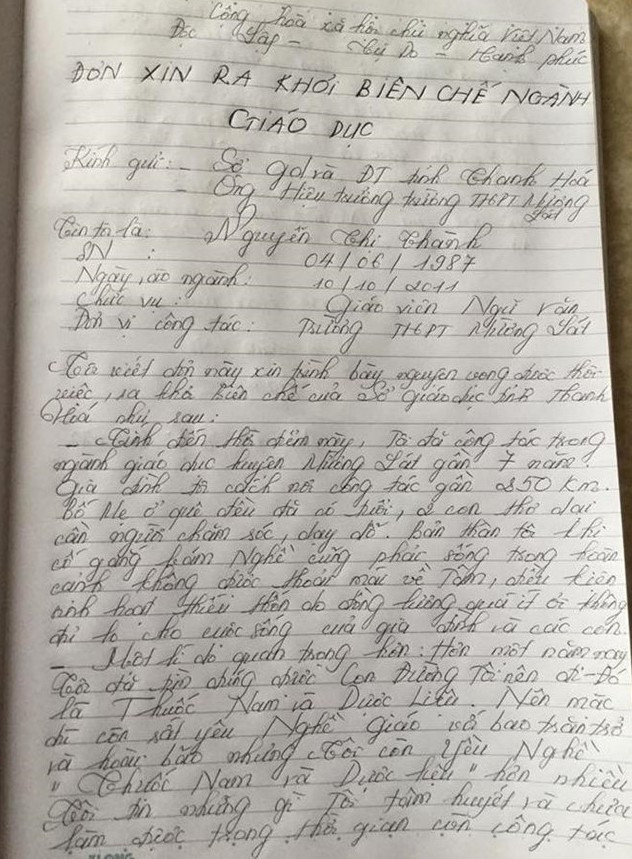 Cộng hoà xã hội chủ nghĩa Việt Nam
Độc lập - Tự Do - Hạnh phúc
ĐƠN XIN RA KHỎI BIÊN CHẾ NGÀNH
GIÁO DỤC
Kính gửi: - Sở gd và ĐT tỉnh Thanh Hoá
- Ông Hiệu trưởng trường THPT Mường Lát
Tên tôi là: Nguyễn Chí Thành
SN : 04/06/1987
Ngày vào ngành: 10/10/2011
Chức vụ : Giáo viên Ngữ văn
Đơn vị công tác: Trường THPT Mường Lát
Tôi viết đơn này xin trình bày nguyện vọng được thôi
việc, ra khỏi biên chế của Sở giáo dục tỉnh Thanh
Hoá như sau:
- Tính đến thời điểm này, Tôi đã công tác trong
ngành giáo dục huyện Mường Lát gần 7 năm.
Gia đình tôi cách nơi công tác gần 250 km.
Bố Mẹ ở quê đều đã có tuổi, 2 con thơ dại
cần người chăm sóc, dạy dỗ. Bản thân tôi khi
cố gắng bám Nghề cũng phải sống trong hoàn
cảnh không được thoải mái về Tâm, điều kiện
sinh hoạt thiếu thốn do đồng lương quá ít ỏi không
đủ lo cho cuộc sống của gia đình và các con.
- Một lí do quan trọng hơn: Hơn một năm nay
Tôi đã tìm đúng được Con Đường Tôi nên đi - Đó
là Thuốc Nam và Dược Liệu. Nên mặc
dù còn rất yêu Nghề giáo với bao trăn trở
và hoài bão nhưng Tôi còn yêu Nghề
"Thuốc Nam và Dược liệu" hơn nhiều
Tôi tin những gì Tôi tâm huyết và chưa
làm được trong thời gian còn công tác